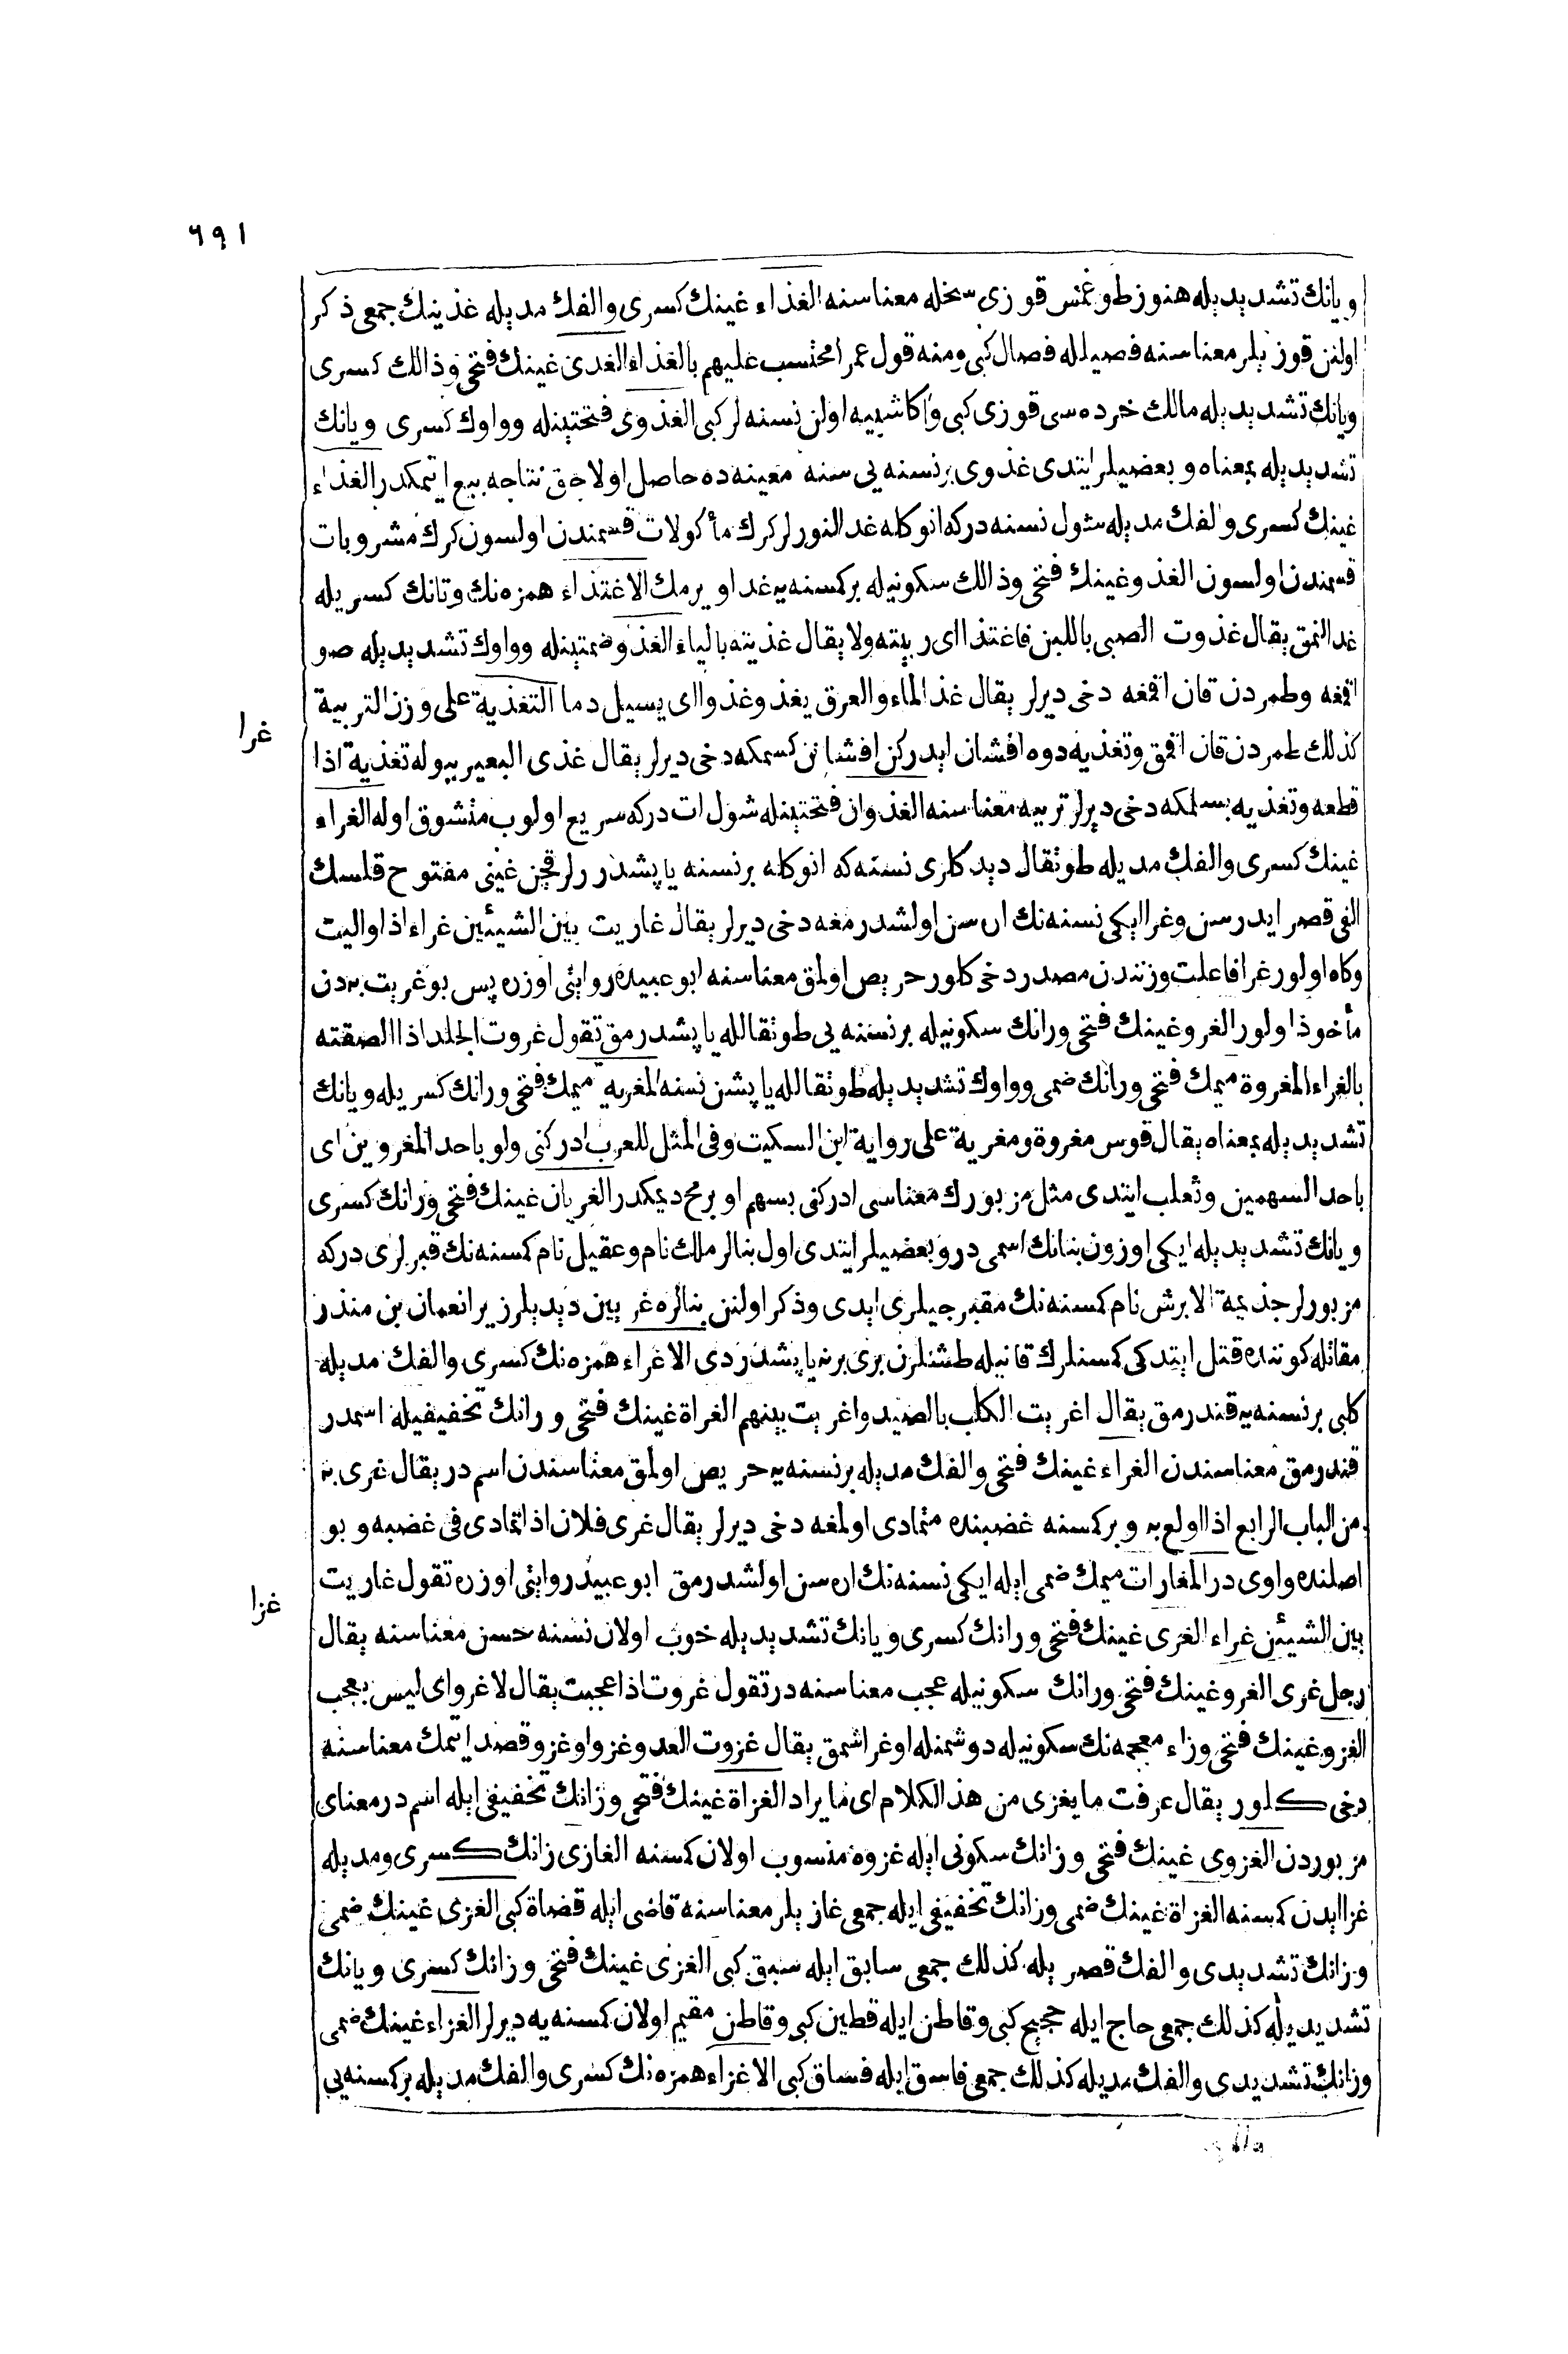 ٦٩١
ويانك تشديديله هنوز طوغمش قوزى سخله معناسنه الغذاء غينك كسرى والفك مديله غذينك جمعى ذكر
اولنن قوزيلر معناسنه فصيلله فصال كبى ومنه قول عمر امحتسب عليهم بالغذاء الغدى غينك فتحى وذالك كسرى
ويانك تشديديله مالك خرده سى قوزى كبى واكا شبيه اولن نسنه لر كبى الغذوى فتحتينله وواوك كسرى ويانك
تشديديله بمعناه وبعضيلر ايتدى غذوى برنسنه يى سنه معينه ده حاصل اولاجق نتاجه بيع ايتمكدر الغذاء
غينك كسرى والفك مديله شول نسنه دركه انوكله غدالنورلر كرك مأكولات قسمندن اولسون كرك مشروبات
قسمندن اولسون الغذو غينك فتحى وذالك سكونيله بركسنه يه غدا ويرمك الاغتذاء همزه نك وتانك كسريله
غدالنمق يقال غذوت الصبى باللبن فاغتذا اى ربيته ولا يقال غذيته بالياء الغذو ضمتينله وواوك تشديديله صو
اقمغه وطمردن قان اقمغه دخى ديرلر يقال غذا الماء والعرق يغذو غذوا اى يسيل دما التغذية على وزن التربية
غرا
كذلك طمردن قان اقمق وتغذيه دوه افشان ايدركن افشانن كسمكه دخى ديرلر يقال غذى البعير ببوله تغذية اذا
قطعه وتغذيه بسلمكه دخى ديرلر تربيه معناسنه الغذوان فتحتينله شول ات دركه سريع اولوب متشوق اوله الغراء
غينك كسرى والفك مديله طوتقال ديدكلرى نسنه كه انوكله برنسنه ياپشدررلر قچن غينى مفتوح قلسك
الفى قصر ايدرسن وغرا ايكى نسنه نك اراسن اولشدرمغه دخى ديرلر يقال غاريت بين الشيئين غراء اذا واليت
وكاه اولور غرا فاعلت وزنندن مصدر دخى كلور حريص اولمق معناسنه ابو عبيده روايتى اوزره پس بو غريت به دن
مأخوذ اولور الغرو غينك فتحى ورانك سكونيله برنسنه يى طوتقالله ياپشدرمق تقول غروت الجلد اذا الصقته
بالغراء المغروة ميمك فتحى ورانك ضمى وواوك تشديديله طوتقالله ياپشن نسنه المغريه ميمك فتحى ورانك كسريله ويانك
تشديديله بمعناه يقال قوس مغروة ومغرية على رواية ابن السكيت وفى المثل للعرب ادركنى ولو باحد المغروين اى
باحد السهمين وثعلب ايتدى مثل مزبورك معناسى ادركنى بسهم او برمح ديمكدر الغريان غينك فتحى ورانك كسرى
ويانك تشديديله ايكى اوزون بنانك اسمى در وبعضيلر ايتدى اول بنالر مالك نام وعقيل نام كسنه نك قبرلرى دركه
مزبورلر جذيمة الابرش نام كسنه نك مقبرجيلرى ايدى وذكر اولنن بنالره غريين ديديلر زيرا نعمان بن منذر
مقاتله كوننده قتل ايتدكى كسنلرك قانيله طشنلرن برى برنه ياپشدردى الاغراء همزه نك كسرى والفك مديله
كلبى برنسنه يه قندرمق يقال اغريت الكلب بالصيد واغريت بينهم الغراة غينك فتحى ورانك تخفيفيله اسمدر
قندرمق معناسندن الغراء غينك فتحى والفك مديله برنسنه يه حريص اولمق معناسندن اسم در يقال غرى به
من الباب الرابع اذا اولع به وبركسنه غضبنده متمادى اولمغه دخى ديرلر يقال غرى فلان اذا تمادى فى غضبه وبو
اصلنده واوى در المغارات ميمك ضمى ايله ايكى نسنه نك اره سن اولشدرمق ابو عبيد روايتى اوزره تقول غاريت
غزا
بين الشيئن غراء الغرى غينك فتحى ورانك كسرى ويانك تشديديله خوب اولان نسنه حسن معناسنه يقال
رجل غرى الغرو غينك فتحى ورانك سكونيله عجب معناسنه در تقول غروت اذا عجبت يقال لا غرو اى ليس بعجب
الغزو غينك فتحى وزاء معجمه نك سكونيله دوشمنله اوغراشمق يقال غزوت العدو غزوا وغزو قصد ايتمك معناسنه
دخى كلور يقال عرفت ما يغزى من هذا الكلام اى ما يراد الغزاة غينك فتحى وزانك تخفيفى ايله اسم در معناى
مزبوردن الغزوى غينك فتحى وزانك سكونى ايله غزوه منسوب اولان كسنه الغازى زانك كسرى ومديله
غزا ايدن كسنه الغزاة غينك ضمى وزانك تخفيفى ايله جمعى غازيلر معناسنه قاضى ايله قضاة كبى الغزى غينك ضمى
وزانك تشديدى والفك قصريله كذلك جمعى سابق ايله سبق كبى الغزى غينك فتحى وزانك كسرى ويانك
تشديديله كذلك جمعى حاج ايله حجيج كبى وقاطن ايله قطين كبى وقاطن مقيم اولان كسنه يه ديرلر الغزاء غينك ضمى
وزانك تشديدى والفك مديله كذلك جمعى فاسق ايله فساق كبى الاغزاء همزه نك كسرى والفك مديله بركسنه يى